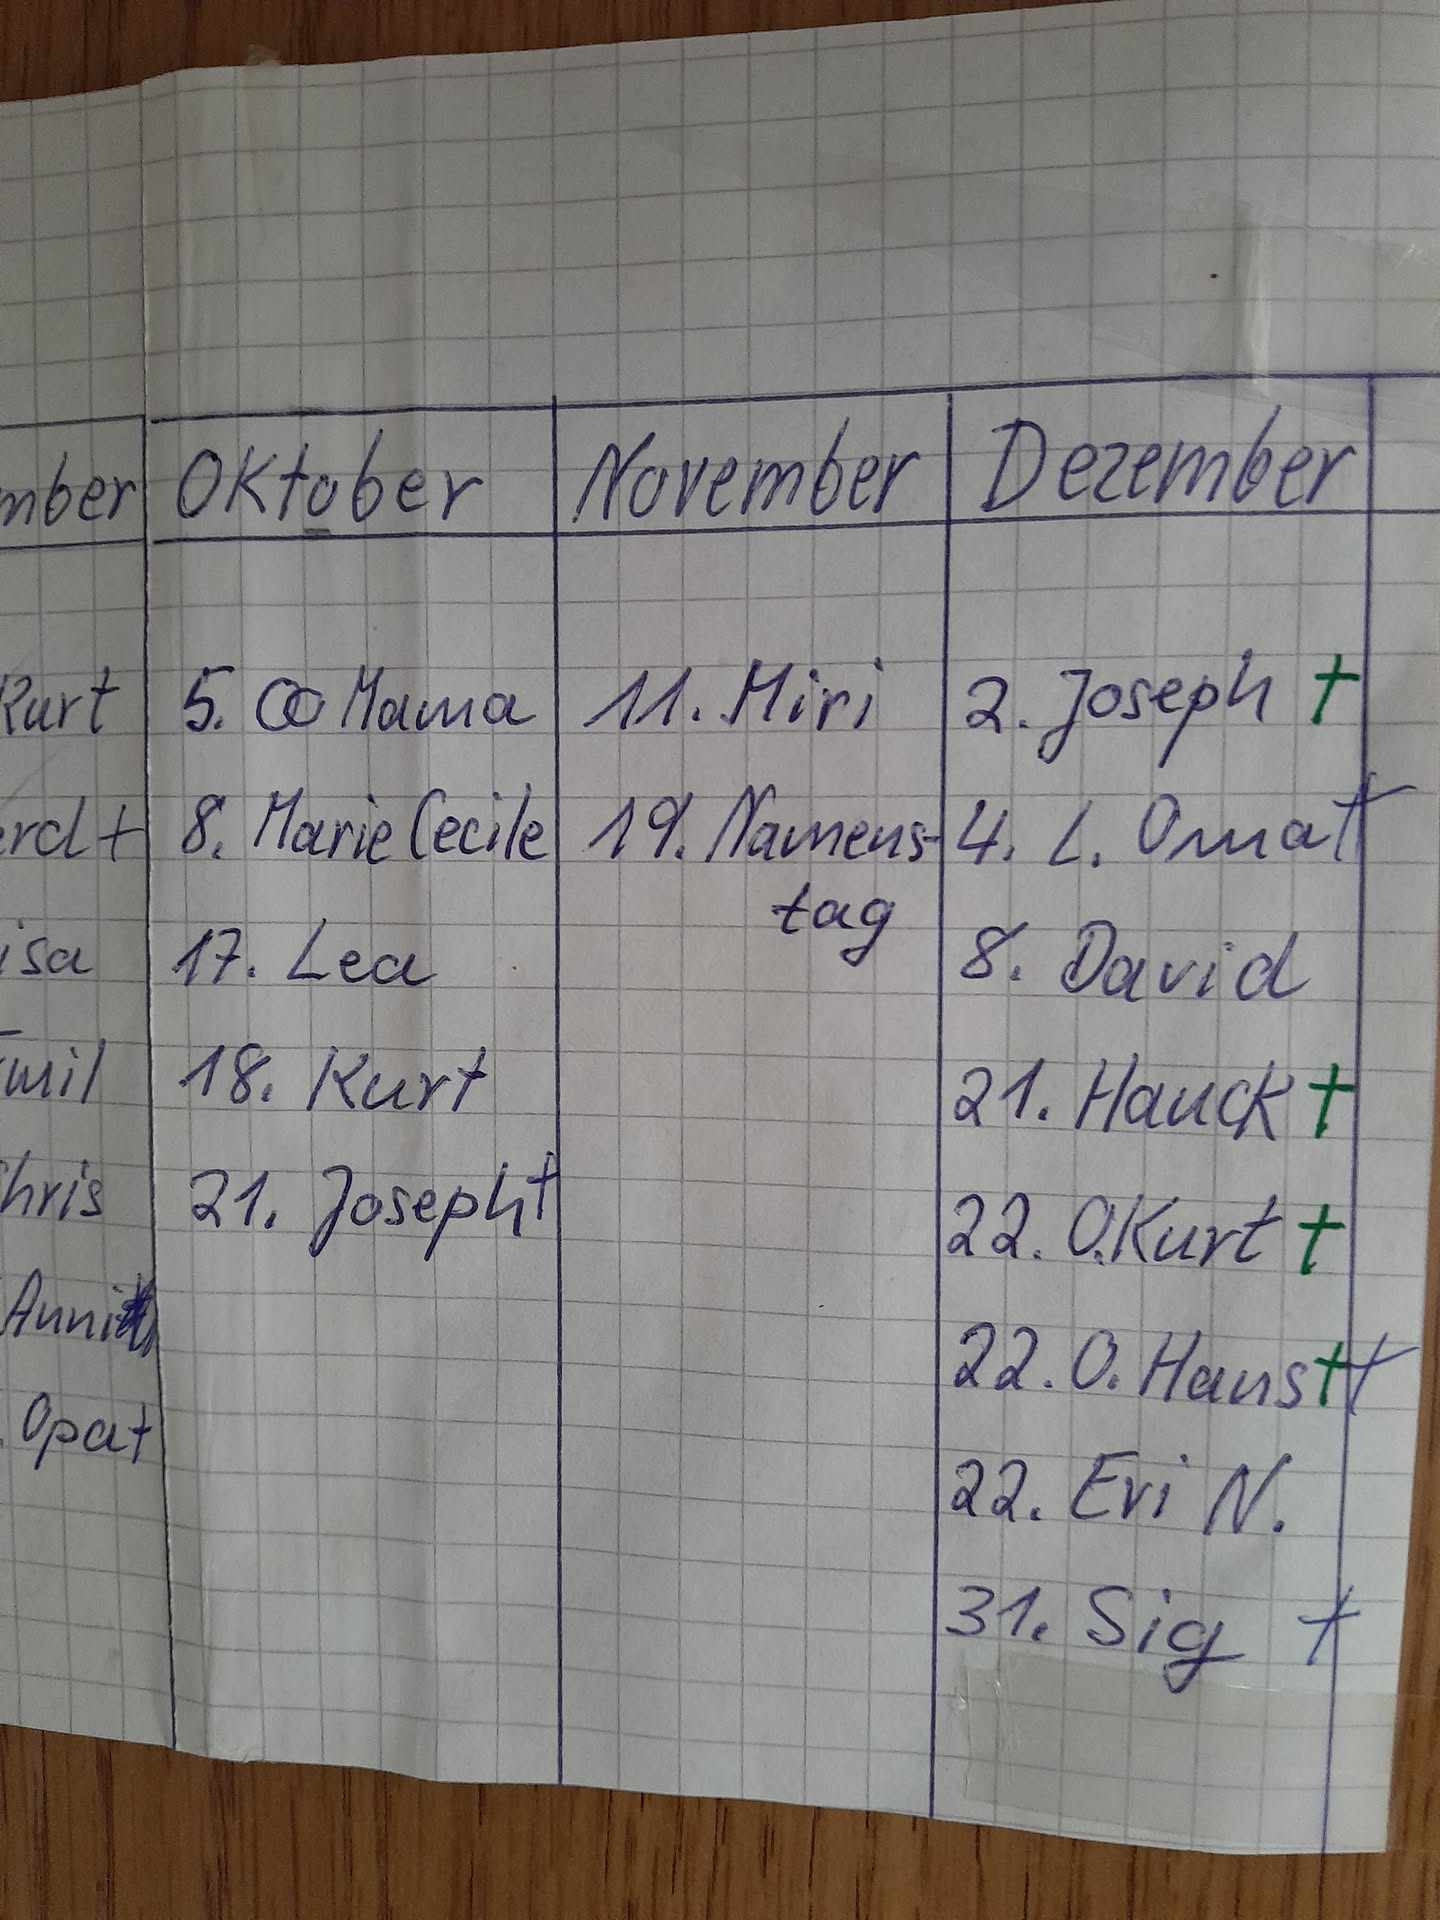 mber
Kurt
erd +
isa
mil
hris
Anni
. Opa +
Oktober
5. ꝏ Mama
8. Marie Cecile
17. Lea
18. Kurt
21. Joseph +
November
11. Miri
19. Namens-
tag
Dezember
2. Joseph +
4. L. Oma +
8. David
21. Hauck +
22. O. Kurt +
22. O. Hans ++
22. Eri N.
31. Sig +